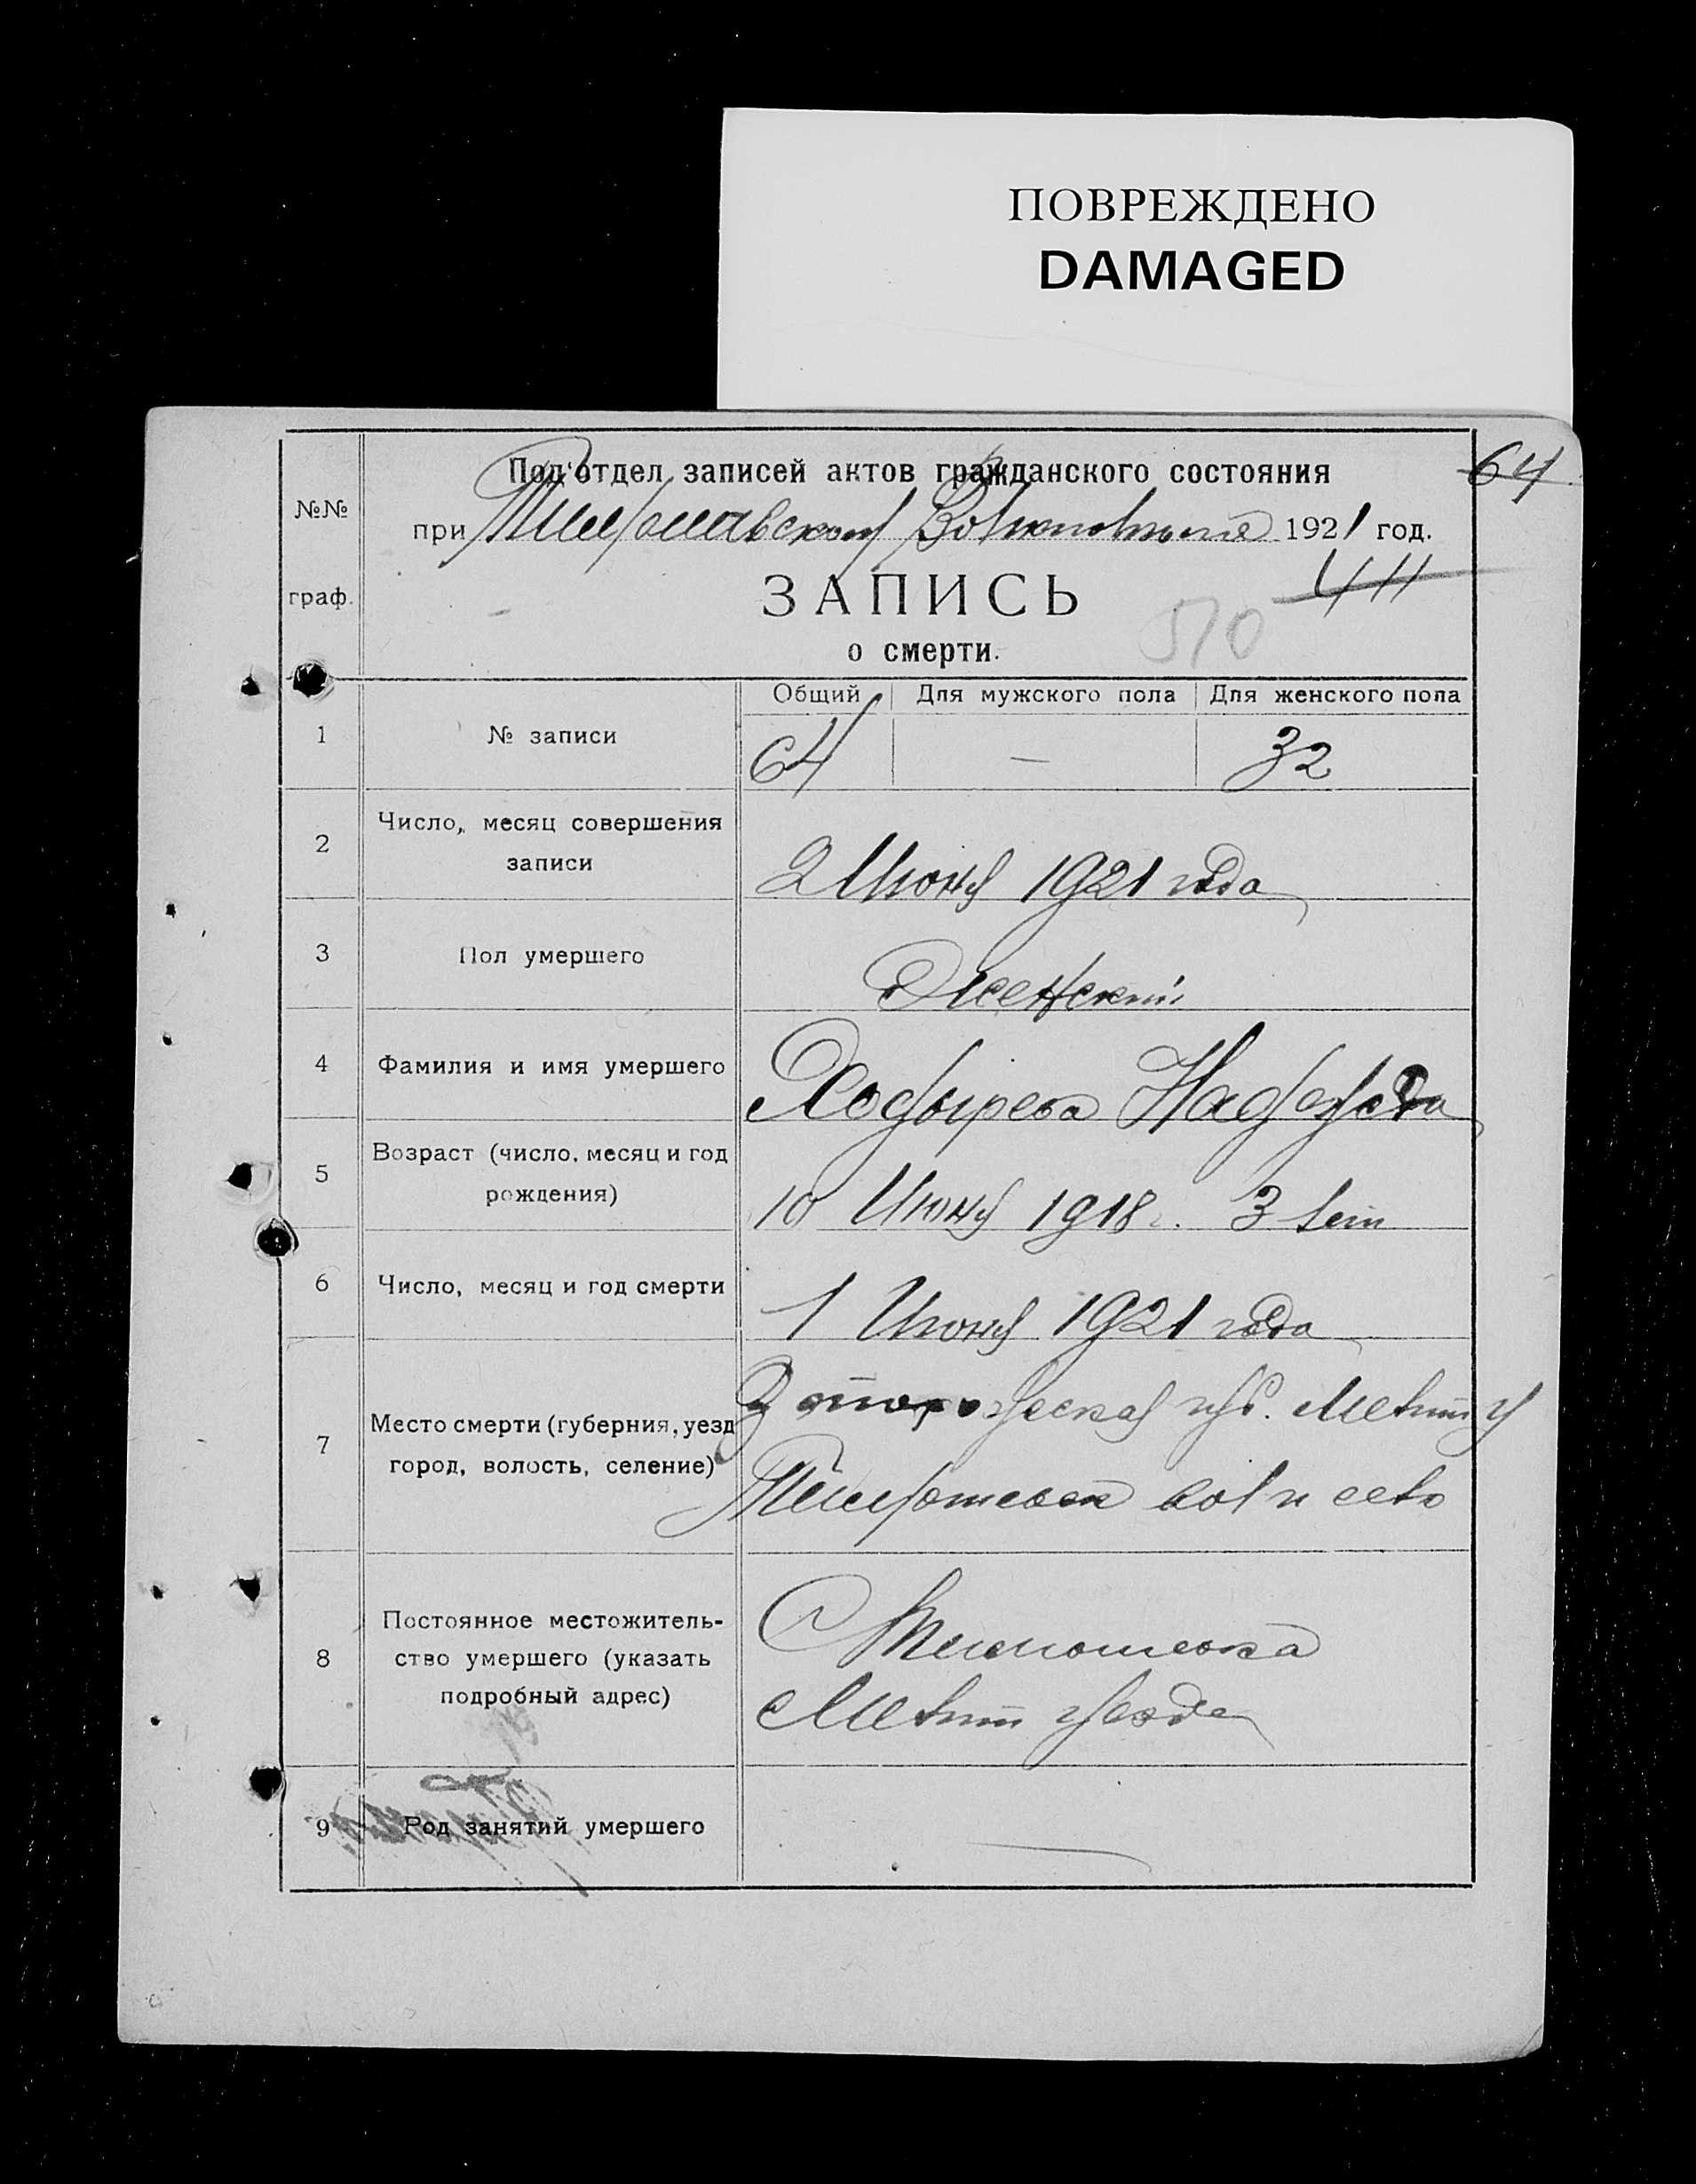 ПОВРЕЖДЕНО
DAMAGED
64
Под'отдел записей актов гражданского состояния
№№ граф.
при Тимошевском Волисполкоме 1921 год.
44
ЗАПИСЬ
510
о смерти.
Общий Для мужского пола Для женского пола
1 № записи 64 — 32
2 Число, месяц совершения
записи
2 Июня 1921 года
3 Пол умершего Женский
4 Фамилия и имя умершего Ходырева Надежда
5 Возраст (число, месяц и год
рождения)
10 Июня 1918 г. 3 лет
6 Число, месяц и год смерти 1 Июня 1921 года
7 Место смерти (губерния, уезд
город, волость, селение)
Запорожская губ. Мелит у
Тимошевск вол и село
8 Постоянное местожитель-
ство умершего (указать
подробный адрес)
С Тимошевка
Мелит уезда
9 Род занятий умершего —